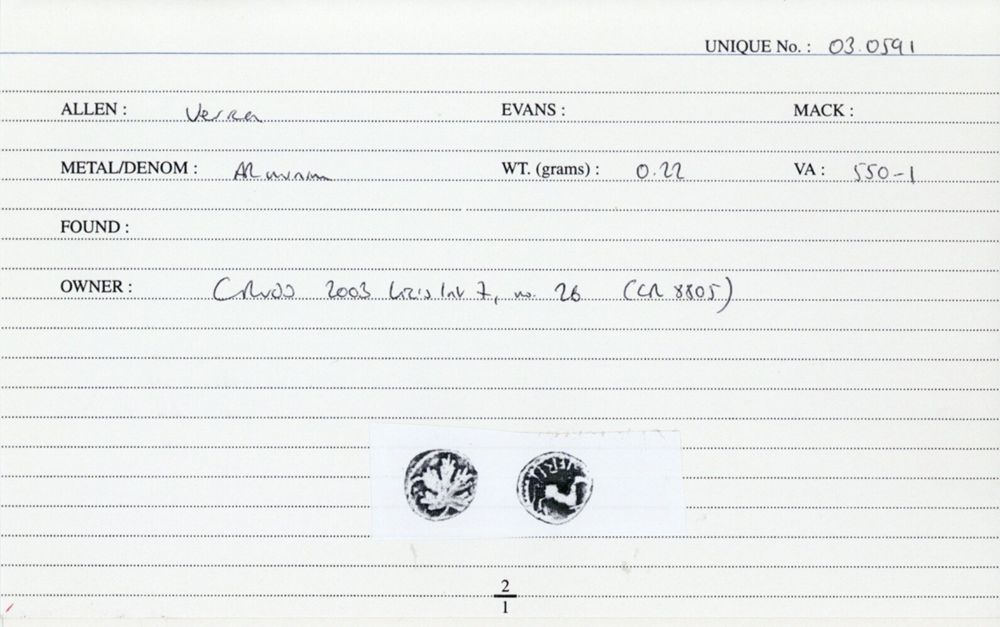 UNIQUE No. : 03.0591
ALLEN : Verica EVANS : MACK :
METAL/DENOM : AR minim WT. (grams) : 0.22 VA : 550-1
FOUND :
OWNER : 2003 List 7, no. 26 (CR 8805)
VERI
2
1